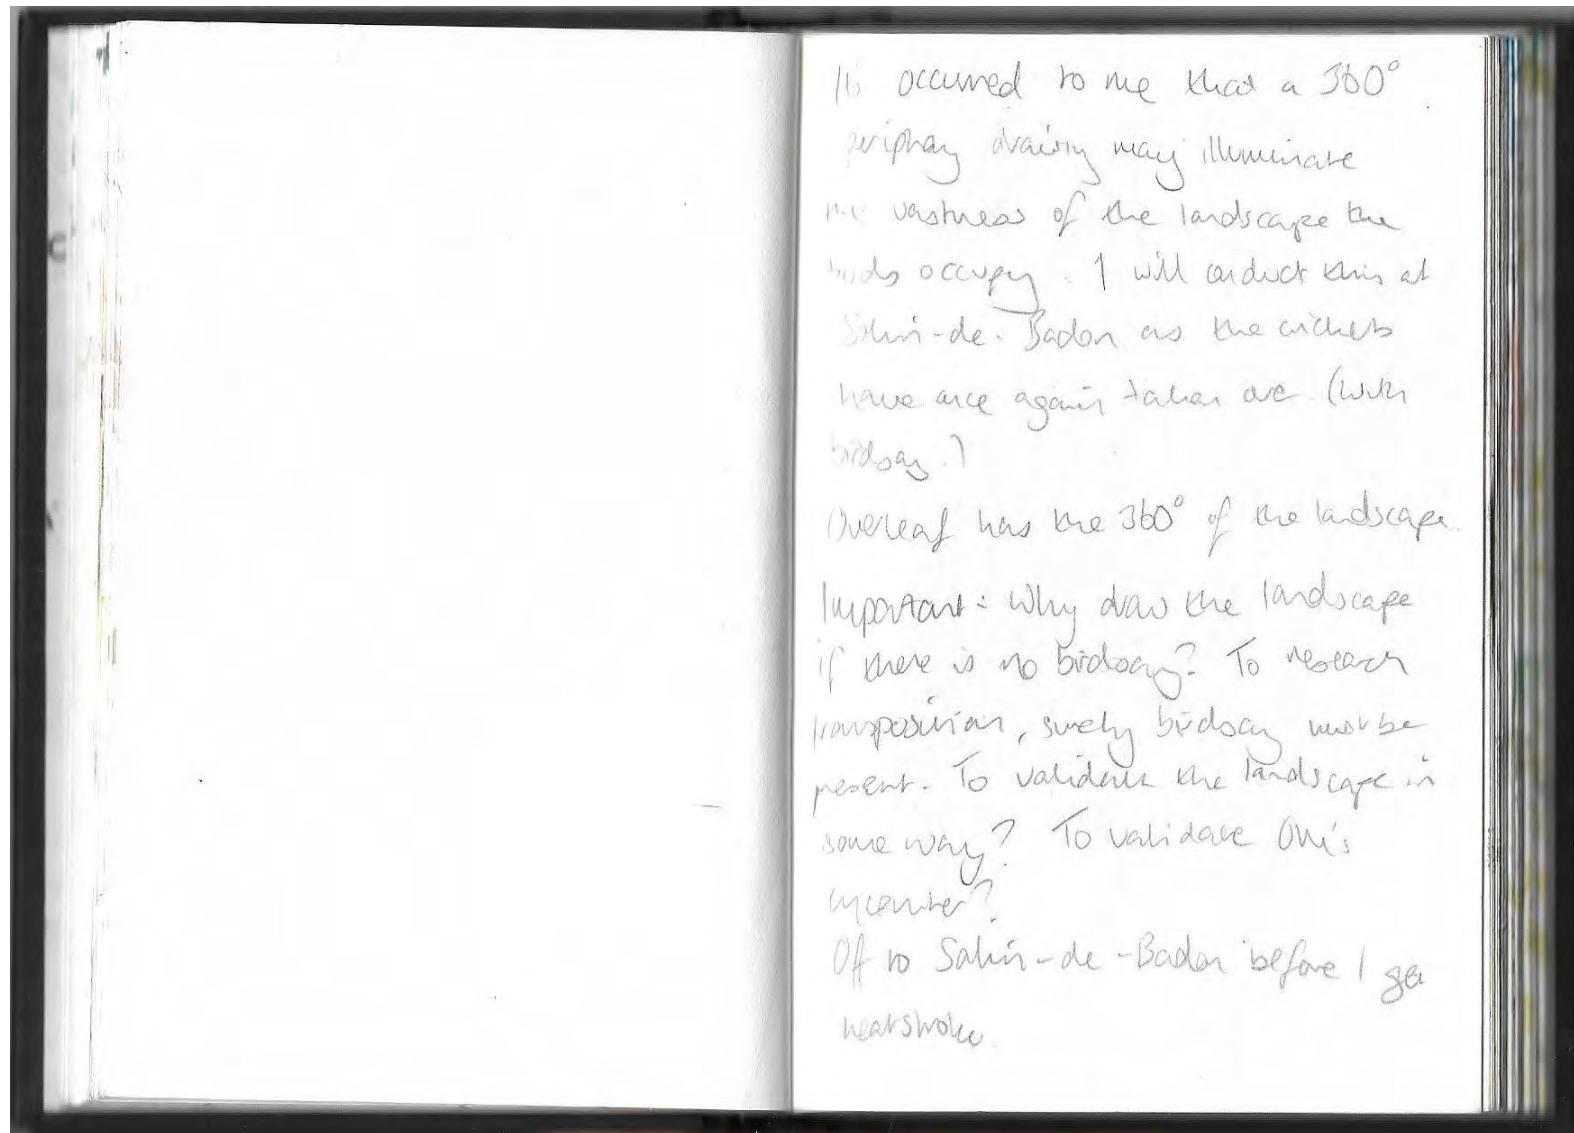 It's occurred to me that a 360°
periphery drawing may illuminate
the vastness of the landscape the
birds occupy. I will conduct this at
Salin-de-Badon as the crickets
have once again taken over (with
birdsong.)
Overleaf has the 360° of the landscape.
Important: Why draw the landscape
if there is no birdsong? To research
transposition, surely birdsong must be
present. To validate the landscape in
some way? To validate
encounter?
Off to Salin-de-Badon before I get
heatstroke.